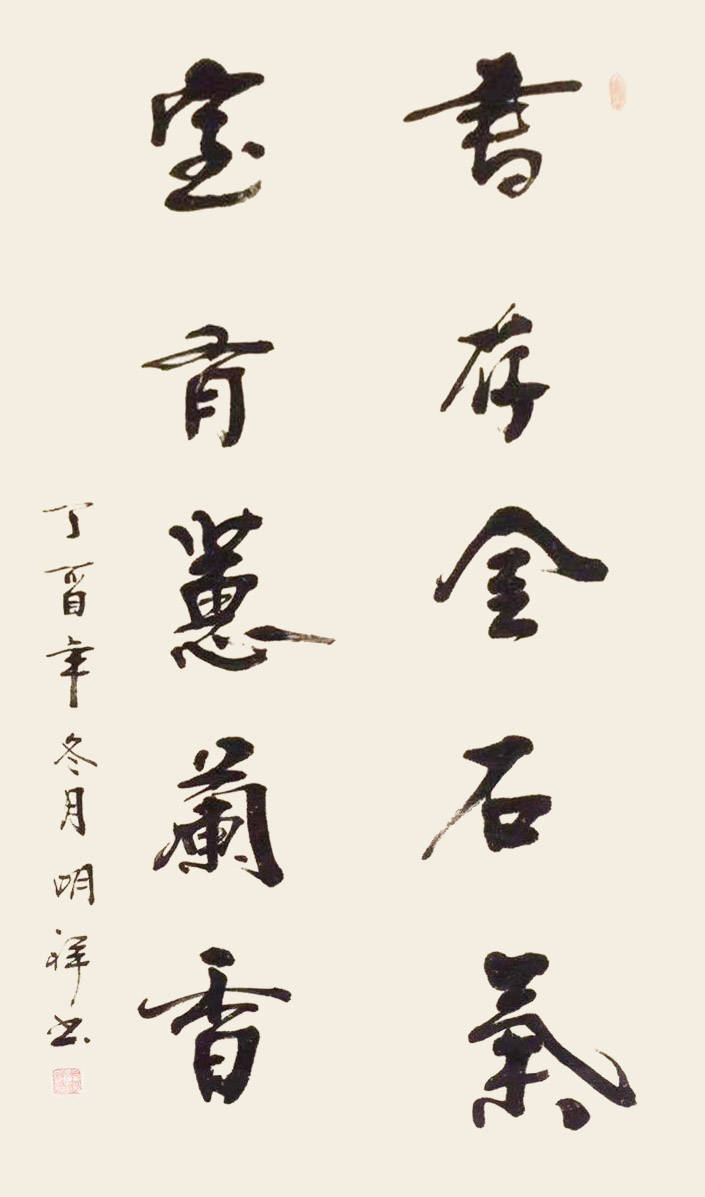 書存金石氣
室有蕙蘭香
丁酉年冬月明祥书